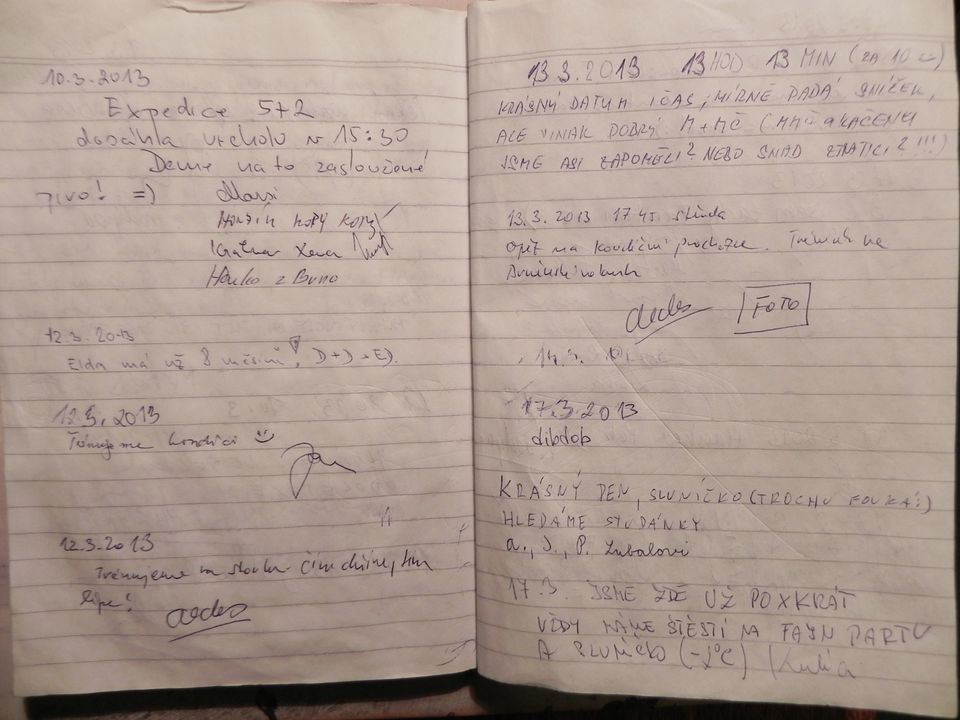 10.3.2013
Expedice 5+2
dosáhla vrcholu v 15:30
Deme na to zasloužené
pivo! =)
Hanko z Brna
12.3.2013
Elda má už 8 měsíců, D+D+E).
12.3.2013
Trénujeme kondici
12.3.2013
Trénujeme na stovku čím dříve, tím
lépe!
13.3.2013 13 HOD 13 MIN (ZA 10
KRÁSNÝ DATUM I ČAS, MÍRNĚ PADÁ SNÍŽEK,
ALE JINAK DOBRÝ M+MČ (
JSME ASI ZAPOMĚLI? NEBO SNAD ZTRATILI?!!!)
13.3.2013 17 45 středa
Opět na kondiční procházce. Trénink na
FOTO
14.3.
17.3.2013
dibdob
KRÁSNÝ DEN, SLUNÍČKO (TROCHU FOUKÁ:)
HLEDÁME STUDÁNKY
a., J., P. Lubalovi
17.3. JSME ZDE UŽ POXKRÁT
VŽDY MÁME ŠTĚSTÍ NA FAJN PARTU
A SLUNÍČKO